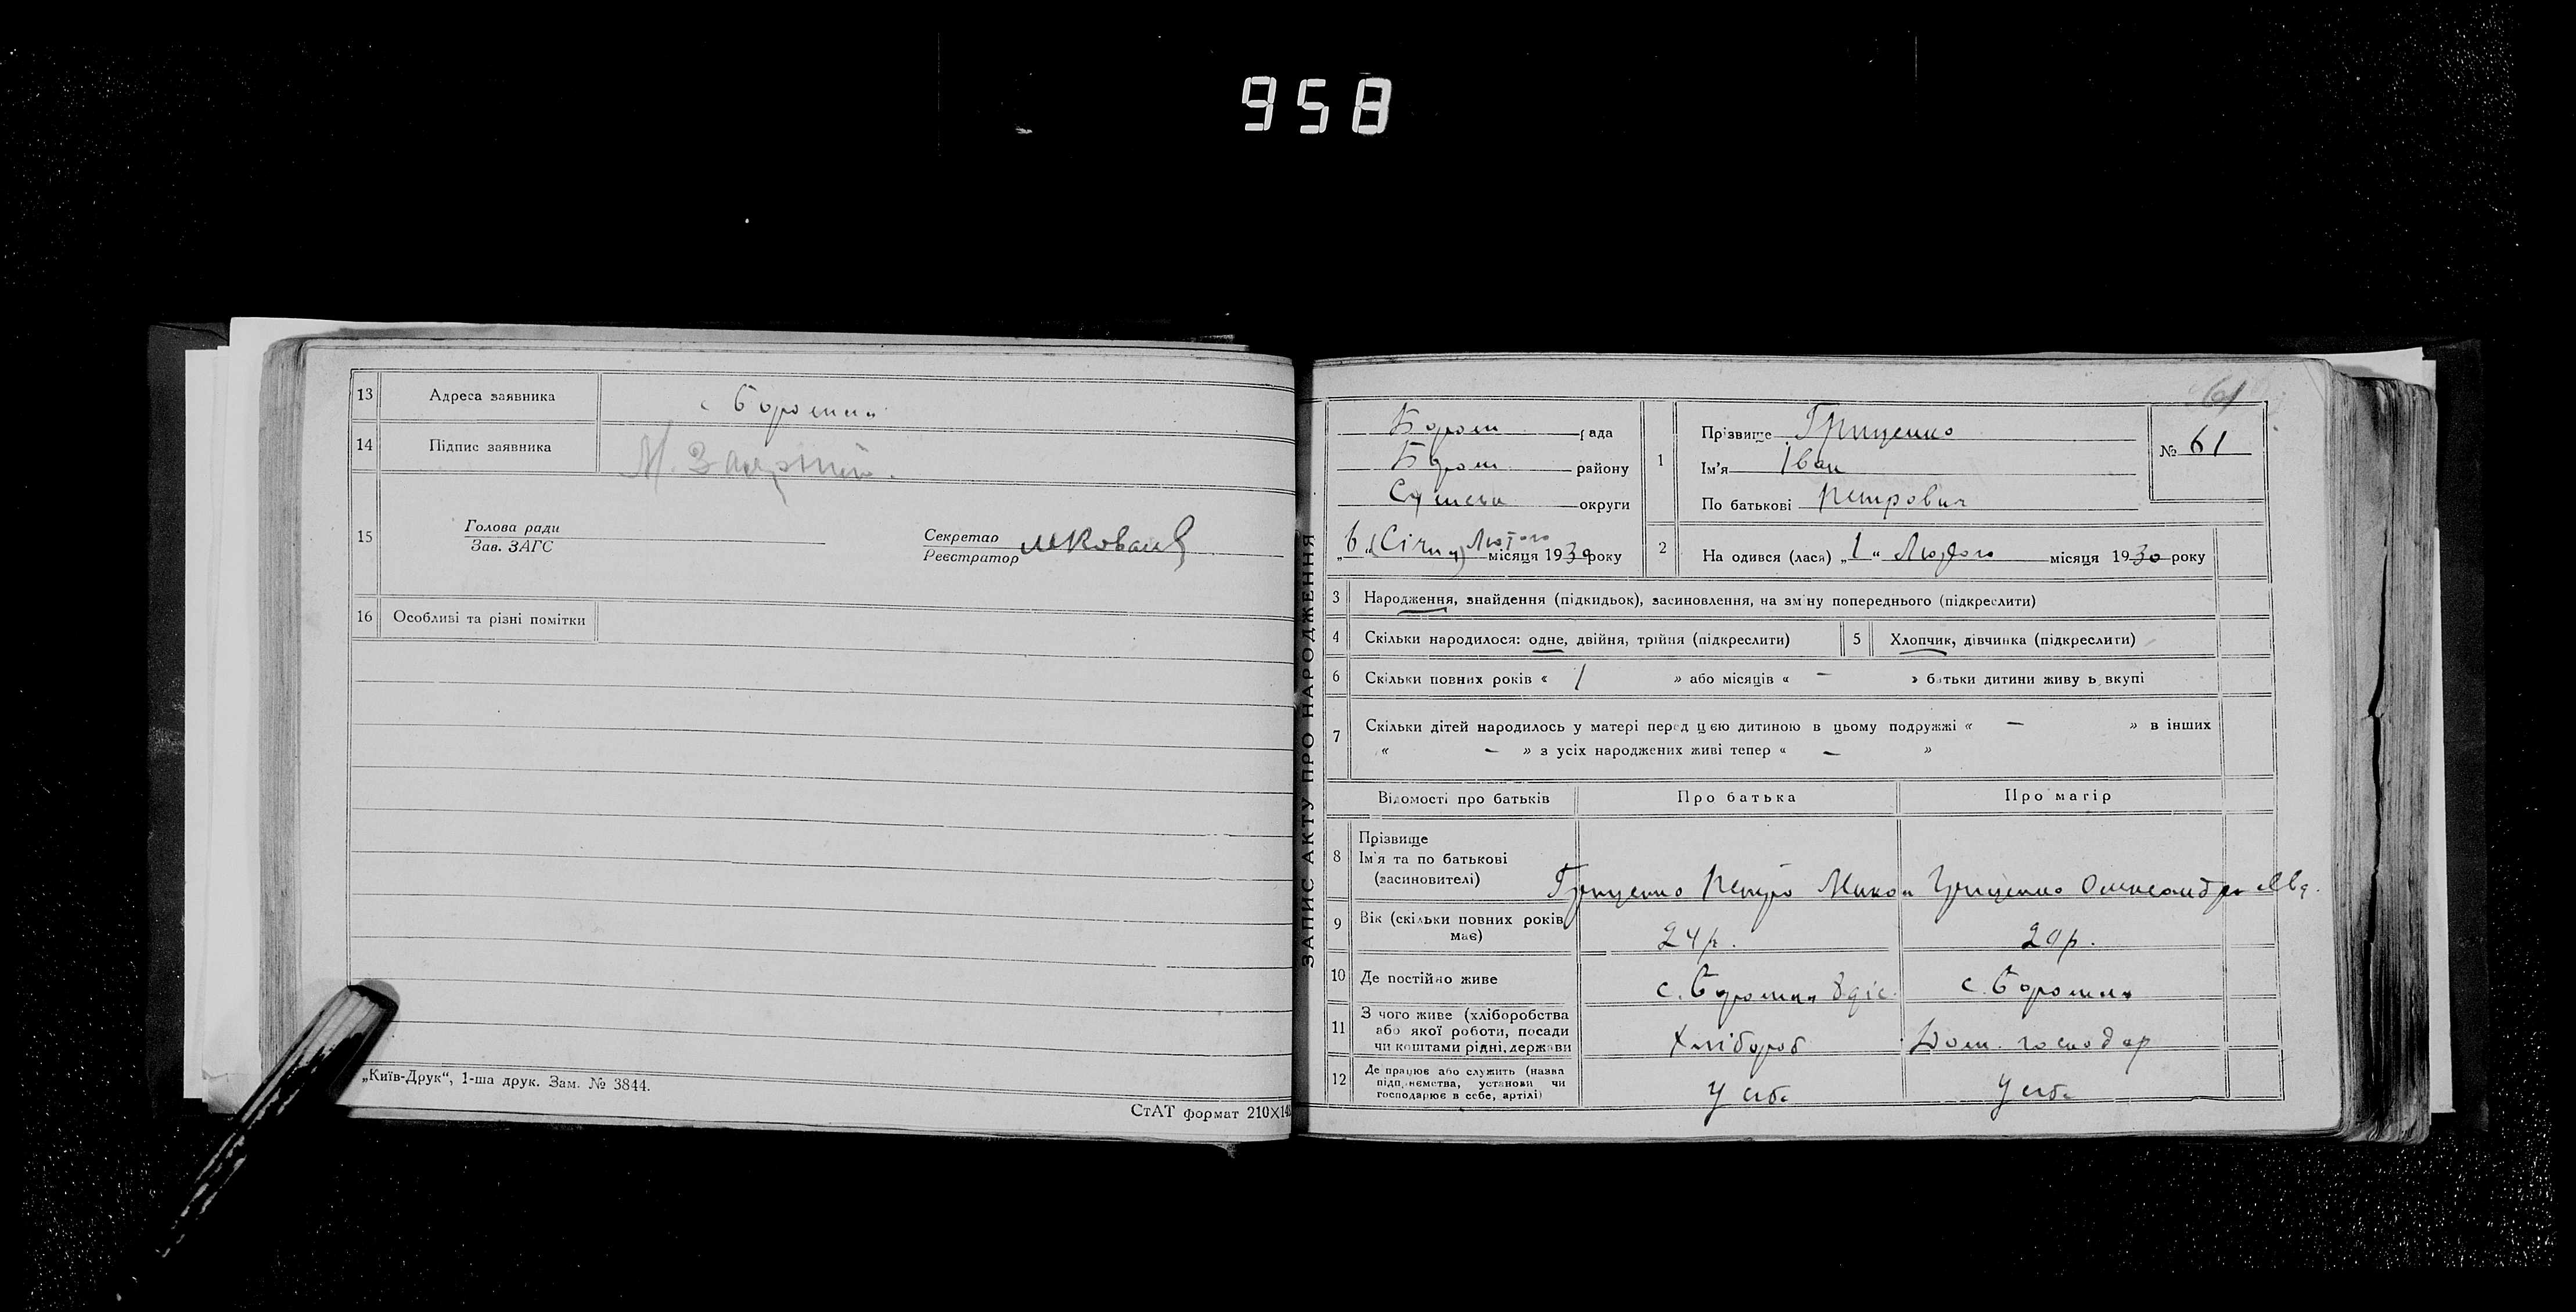 958
13 Адреса заявника с Боромля
14 Підпис заявника М.
15 Голова ради
Зав. ЗАГС
Секретар
Реєстратор
16 Особливі та різні помітки
„Київ-Друк“, 1-ша друк. Зам. № 3844.
СтАТ формат 210Х14
ЗАПИС АКТУ ПРО НАРОДЖЕННЯ
61
Бором рада
Бором району
Сумськ округи
„6„ (Січня) Лютого місяця 1930 року
1 Прізвище Грищенко
Ім'я Іван
По батькові Петрович
№ 61
2 На одився (лася) „1“ Лютого місяця 1930 року
3 Народження, знайдення (підкидьок), засиновлення, на зміну попереднього (підкреслити)
4 Скільки народилося: одне, двійня, трійня (підкреслити)
5 Хлопчик, дівчинка (підкреслити)
6 Скільки повних років « 1 » або місяців « — » батьки дитини живу ь вкупі
7 Скільки дітей народилось у матері перед цією дитиною в цьому подружжі « — » в інших
« — » з усіх народжених живі тепер « — »
Відомості про батьків Про батька Про матір
8 Прізвище
Ім'я та по батькові
(засиновителі)
Грищенко Петро Микол Грищенко Олександра
9 Вік (скільки повних років
має)
24 р. 20 р.
10 Де постійно живе с. Боромля с. Боромля
11 З чого живе (хліборобства
або якої роботи, посади
чи коштами рідні, держави
Хлібороб Дом. господар
12 Де працює або служить (назва
підприємства, установи чи
господарює в себе, артілі)
У себе У себе